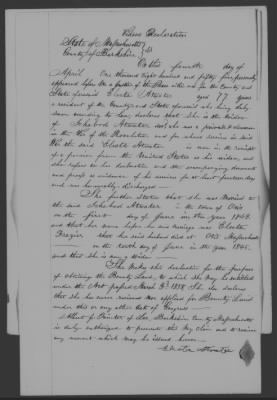 Widows Declaration
State of Massachusetts
County of Berkshire SS
On this fourth day of
April One thousand Eight hundred and fifty five personally
appeared before me a Justice of the Peace within and for the County and
State aforesaid Electa Atwater aged 77 years
a resident of the County and State aforesaid who being duly
sworn according to law, declares that She is the Widow
of Ichabod Atwater who was a private
in the War of the Revolution
the said Electa Atwater is now in the receipt
of a pension from the United States as his widow, and
she refers to her declaration and the accompanying document
and proofs as evidence of his service for at least fourteen days
and was honorably discharged
She further States that she was Married to
the said Ichabod Atwater in the town of Otis
on the first day of June in the year
and that her name before her said marriage was Electa
Frazier that her said husband died at Otis Massachusetts
on the day of June in the year
and that she is now a Widow
She Makes this declaration for the purpose
of obtaining the Bounty Land to which She may be entitled
under the Act passed March 3d 1855 She also declares
that She has never received nor applied for Bounty Land
under this or any other Act of Congress
of Lee, Berkshire County Massachusetts
is duly authorized to prosecute this my claim and to receive
any warrant which may be issued hereon
Electa Atwater